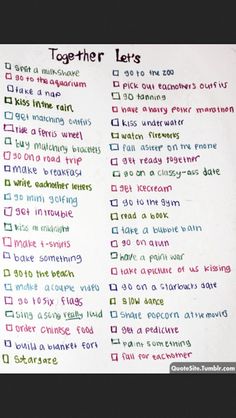 Together Let's
split a milkshake
go to the aquarium
take a nap
kiss in the rain
get matching outfits
ride a ferris wheel
buy matching bracelets
go on a road trip
make breakfast
write eachother letters
go mini golfing
get in trouble
kiss at midnight
make t-shirts
bake something
go to the beach
make a couple video
go to six flags
sing a song really loud
order chinese food
build a blanket fort
stargaze
go to the zoo
pick out eachothers outfits
go tanning
have a harry potter marathon
kiss underwater
watch fireworks
fall asleep on the phone
get ready together
go on a classy-ass date
get icecream
go to the gym
read a book
take a bubble bath
go on a run
have a paint war
take a picture of us kissing
go on a starbucks date
slow dance
share popcorn at the movies
get a pedicure
paint something
fall for eachother
QuoteSite.Tumblr.com